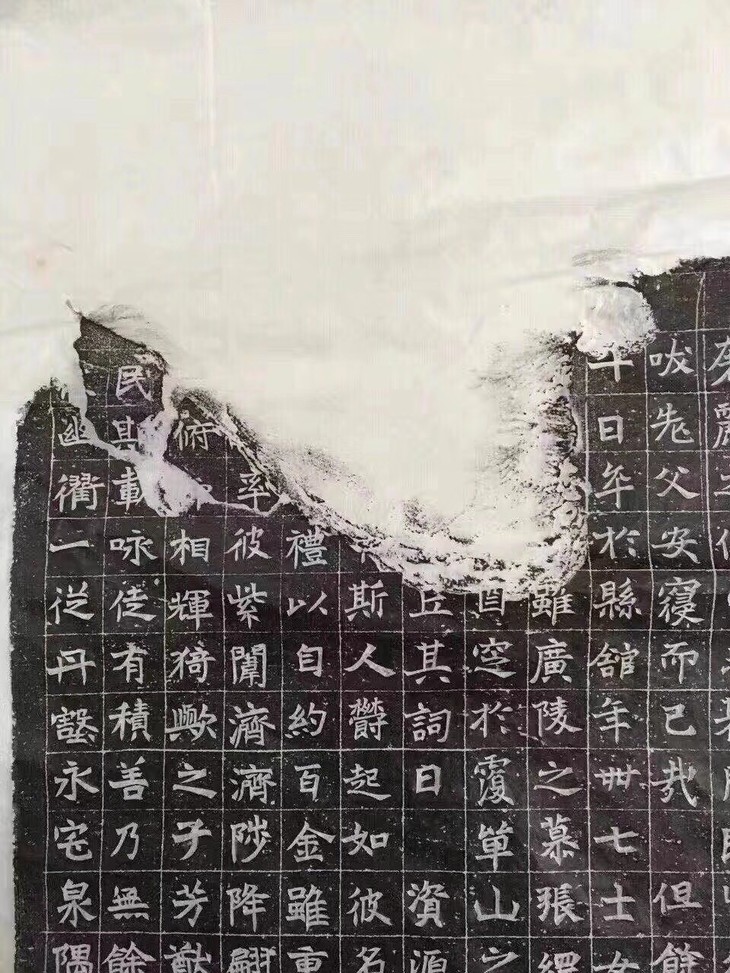 先父安寑而已哉但餘
十日卒於縣舘年卅七士女
雖廣陵之慕張綱
酉窆於覆單山之
丘其詞曰資源
斯人欝起如彼名
禮以自約百金雖重
彼紫闥濟濟陟降翩
俯相輝猗歟之子芳猷
民其載咏徒有積善乃無餘
幽衢一從丹壑永宅泉隅